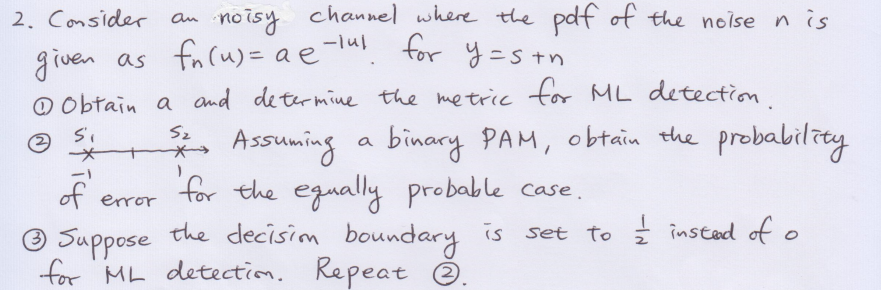 2. Consider an noisy channel where the pdf of the noise n is
given as fn(u) = a e^-|u|. for y = s + n
① Obtain a and determine the metric for ML detection.
② S1 S2 Assuming a binary PAM, obtain the probability
-1 1
of error for the equally probable case.
③ Suppose the decision boundary is set to 1/2 instead of 0
for ML detection. Repeat ②.